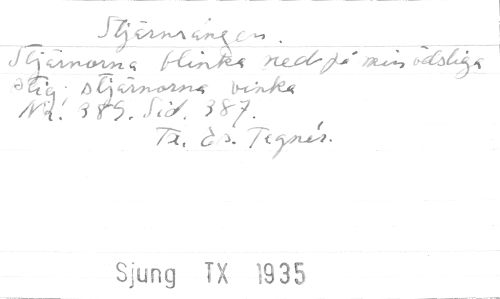 Stjärnsången.
Stjärnorna blinka ned på min ödsliga
stig; stjärnorna vinka
Nr. 389. Sid. 387.
Tx. Es. Tegnér.
Sjung TX 1935